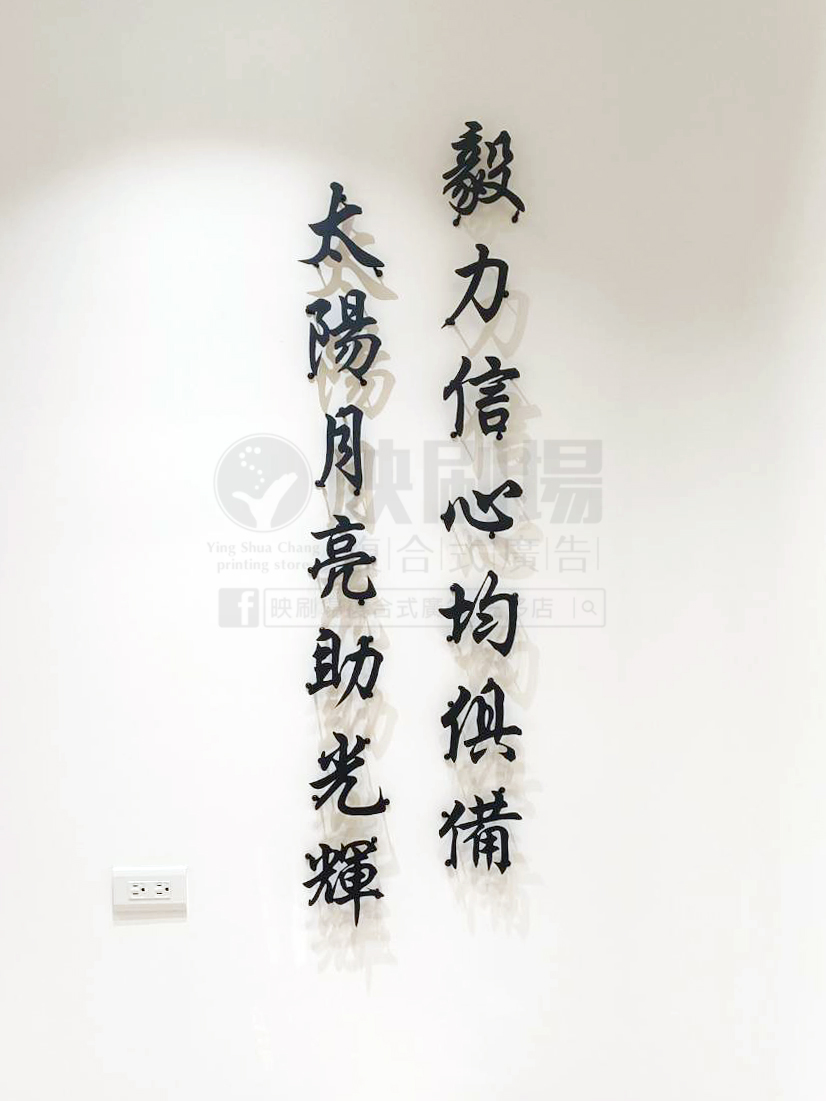 毅力信心均俱備
太陽月亮助光輝
映刷場
Ying Shua Chang
printing store
複合式廣告